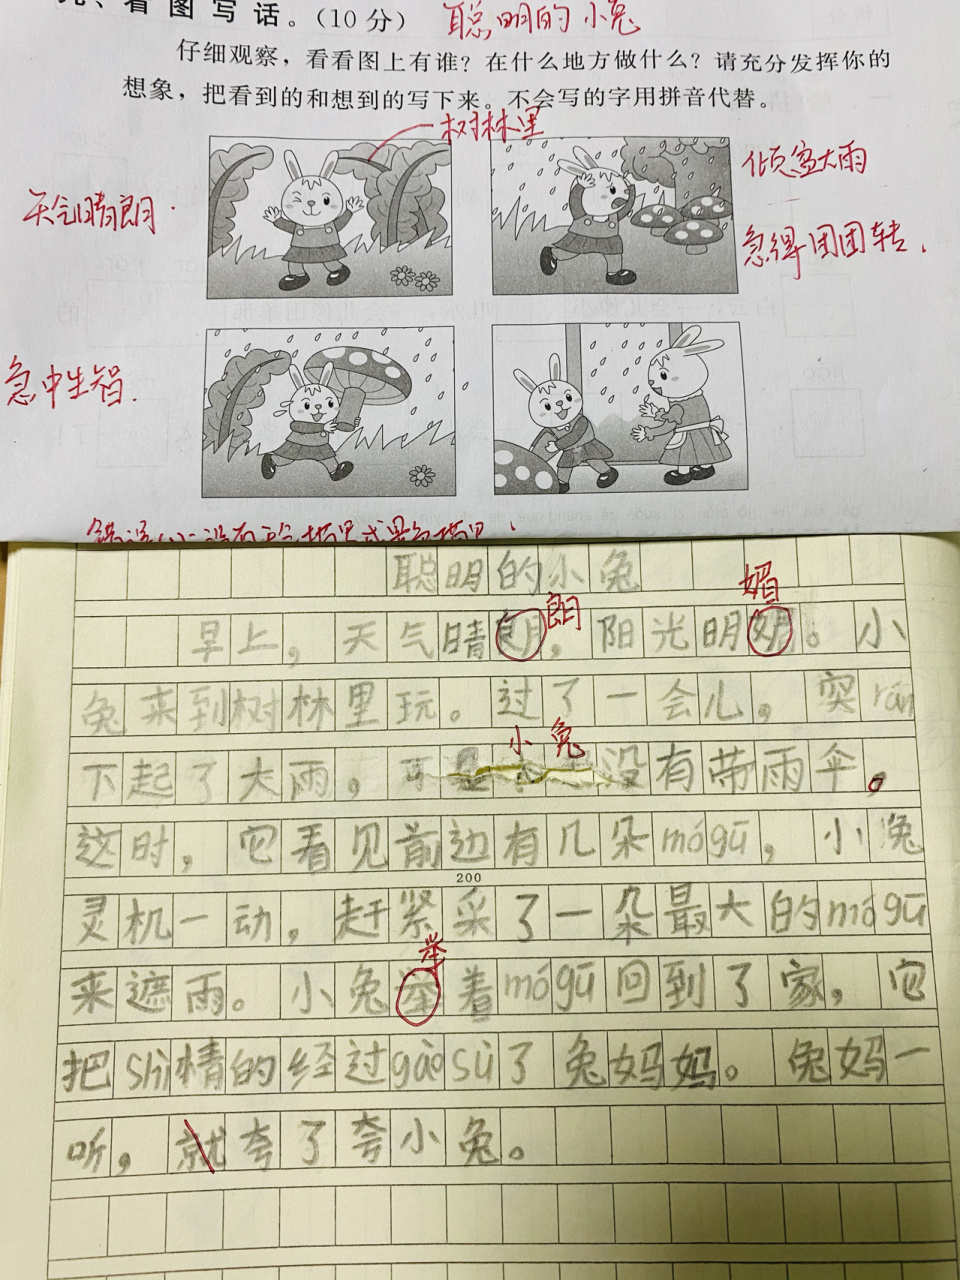 九、看图写话。(10分) 聪明的小兔
仔细观察，看看图上有谁？在什么地方做什么？请充分发挥你的
想象，把看到的和想到的写下来。不会写的字用拼音代替。
树林里
天气晴朗.
倾盆大雨
急得团团转.
急中生智.
聪明的小兔
早上，天气晴朗，阳光明媚。小
朗
媚
兔来到树林里玩。过了一会儿，突rán
下起了大雨，可是小兔没有带雨伞。
这时，它看见前边有几朵mógū，小兔
200
灵机一动，赶紧采了一朵最大的mógū
来遮雨。小兔举着mógū回到了家，它
举
把shì情的经过gàosù了兔妈妈。兔妈一
听，就夸了夸小兔。